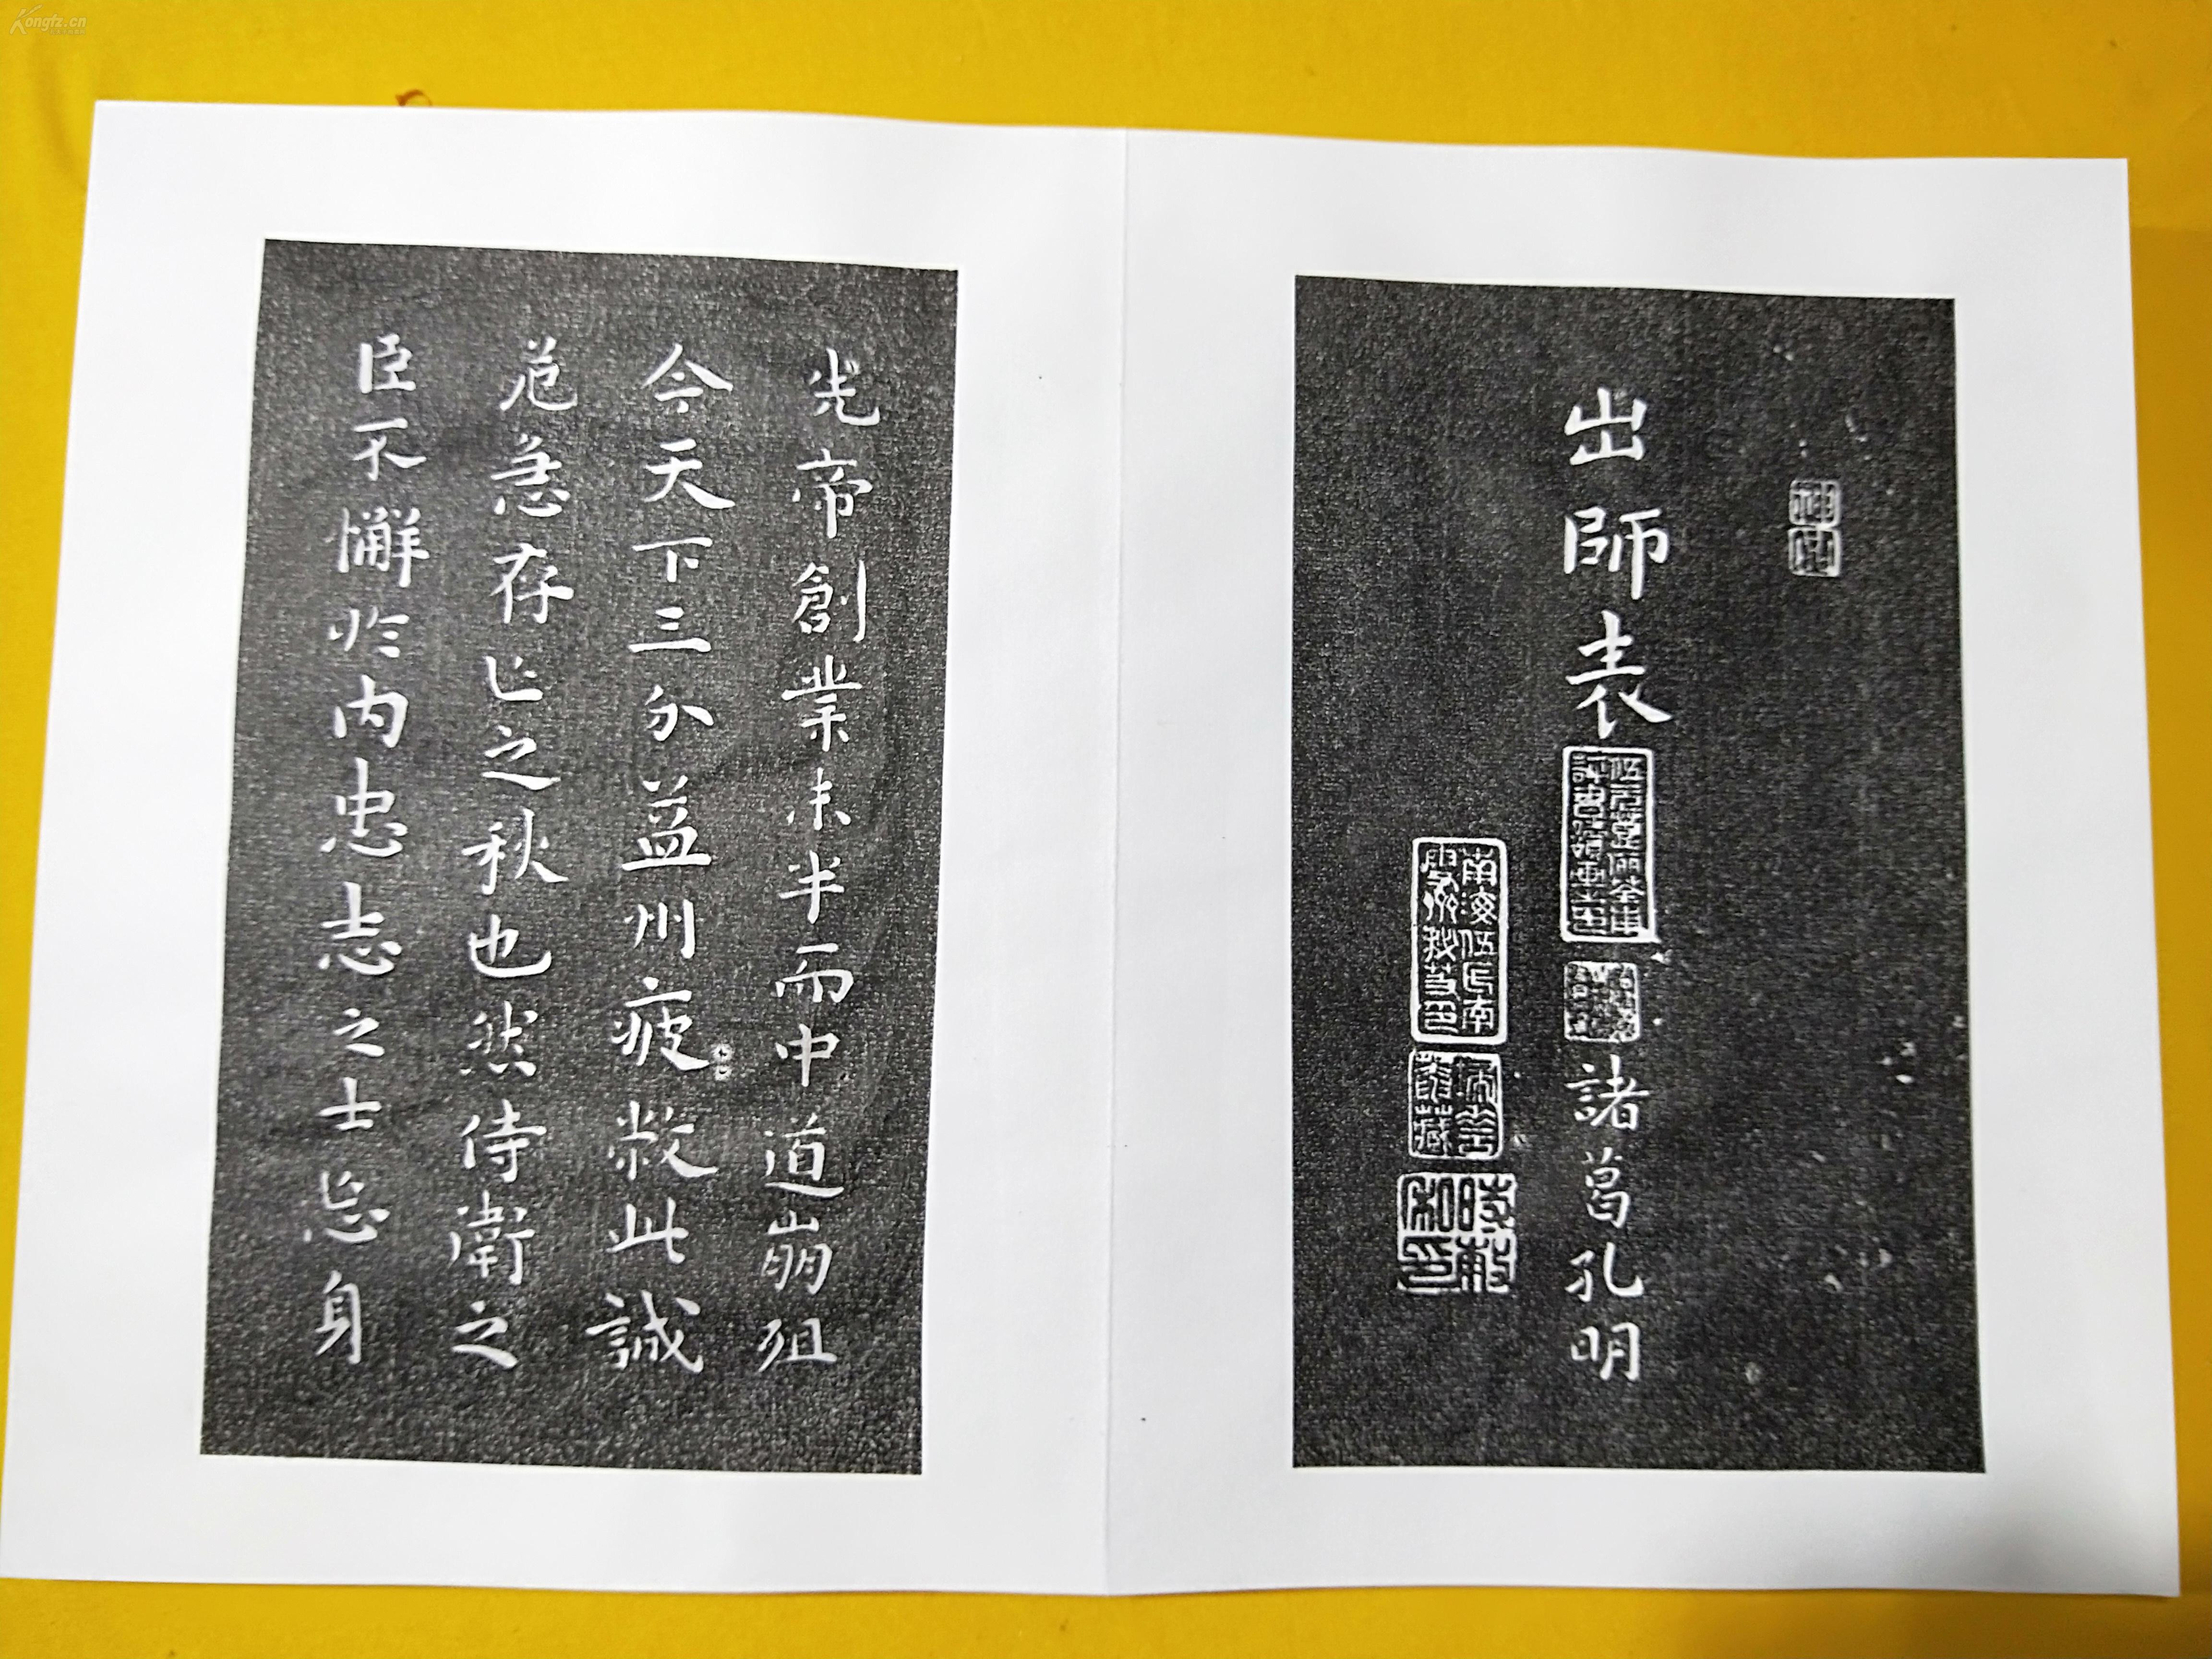 出師表
諸葛孔明
南海伍氏南
時敕
和印
先帝創業未半而中道崩殂
今天下三分益州疲敝此誠
危急存亡之秋也然侍衛之
臣不懈於内忠志之士忘身
Kongfz.cn